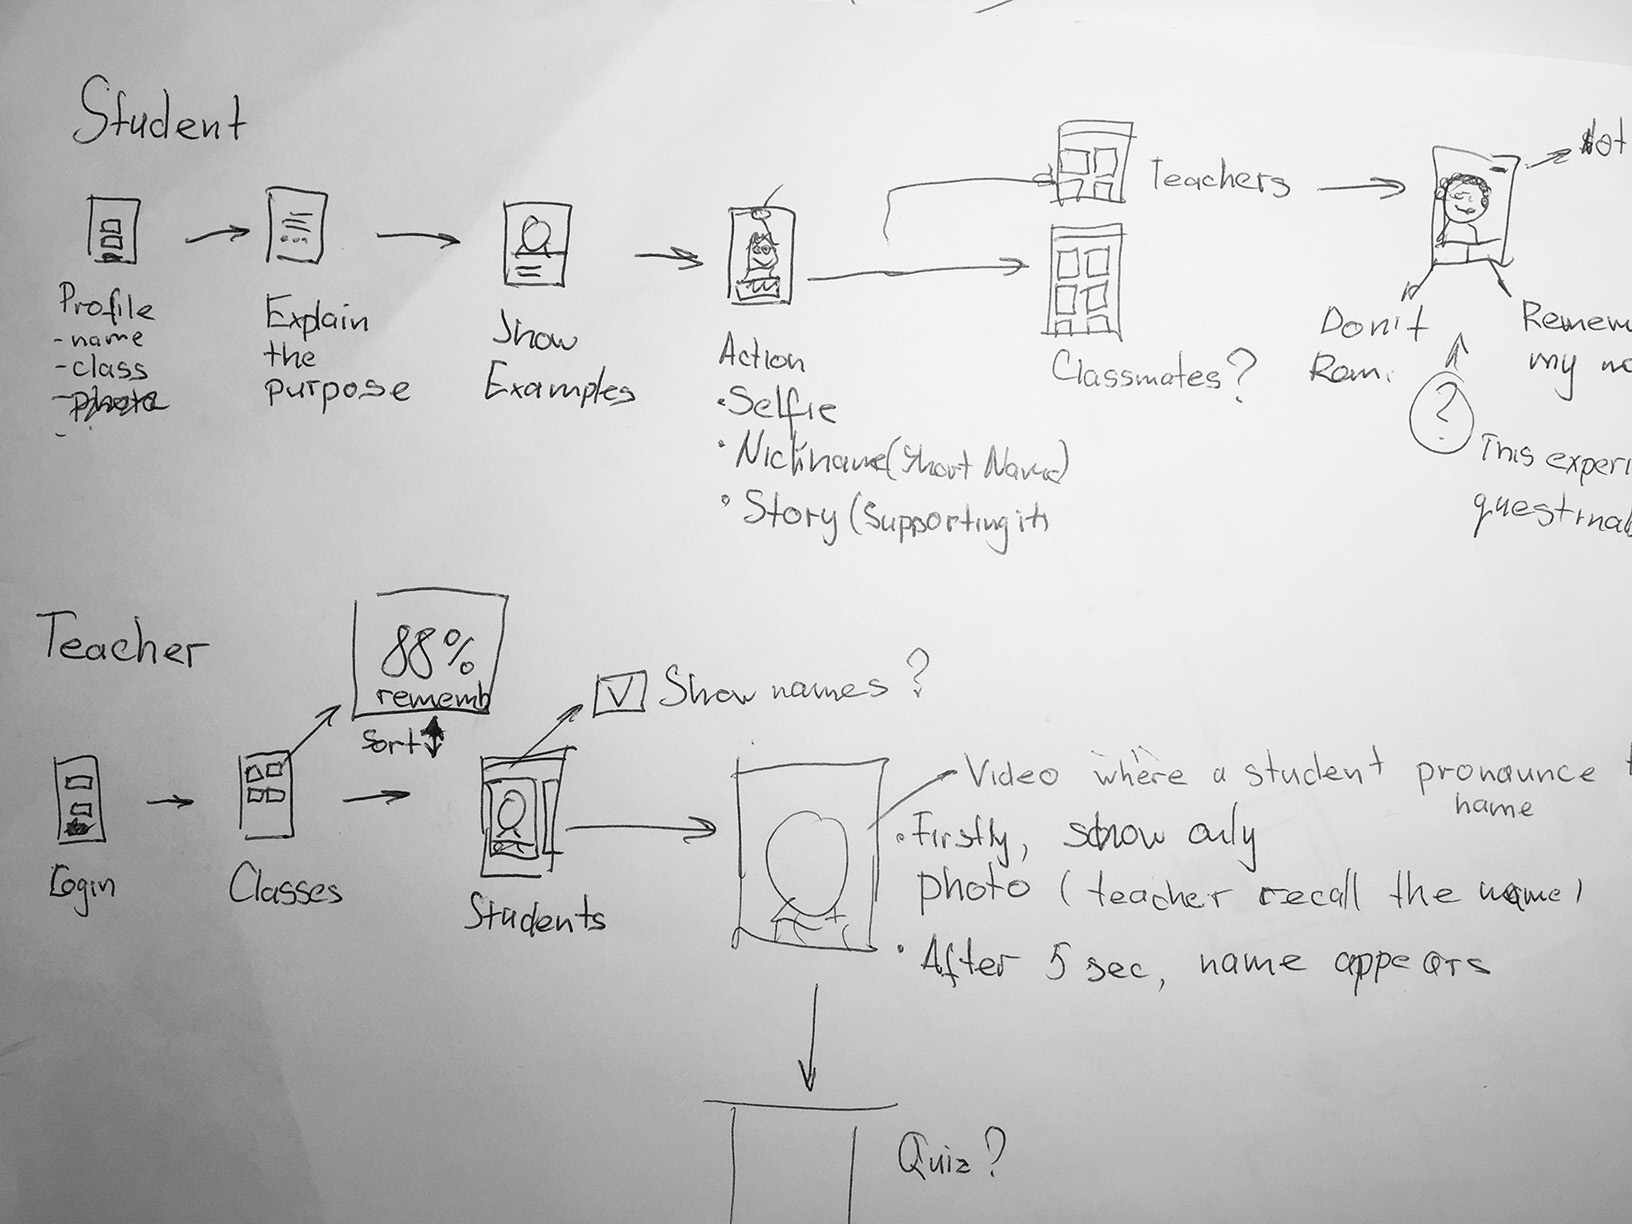 Student
Profile
- name
- class
- photo
-
Explain
the
purpose
Show
Examples
Action
• Selfie
• Nickname (Short Name)
• Story (Supporting it)
Teachers
Classmates?
Not
Don't
Rem.
Remem
my na
?
This experi
questinab
Teacher
88%
rememb
Sort
Show names?
Login
Classes
Students
Video where a student pronounce t
name
• Firstly, show only
photo (teacher recall the name)
• After 5 sec, name appears
Quiz?